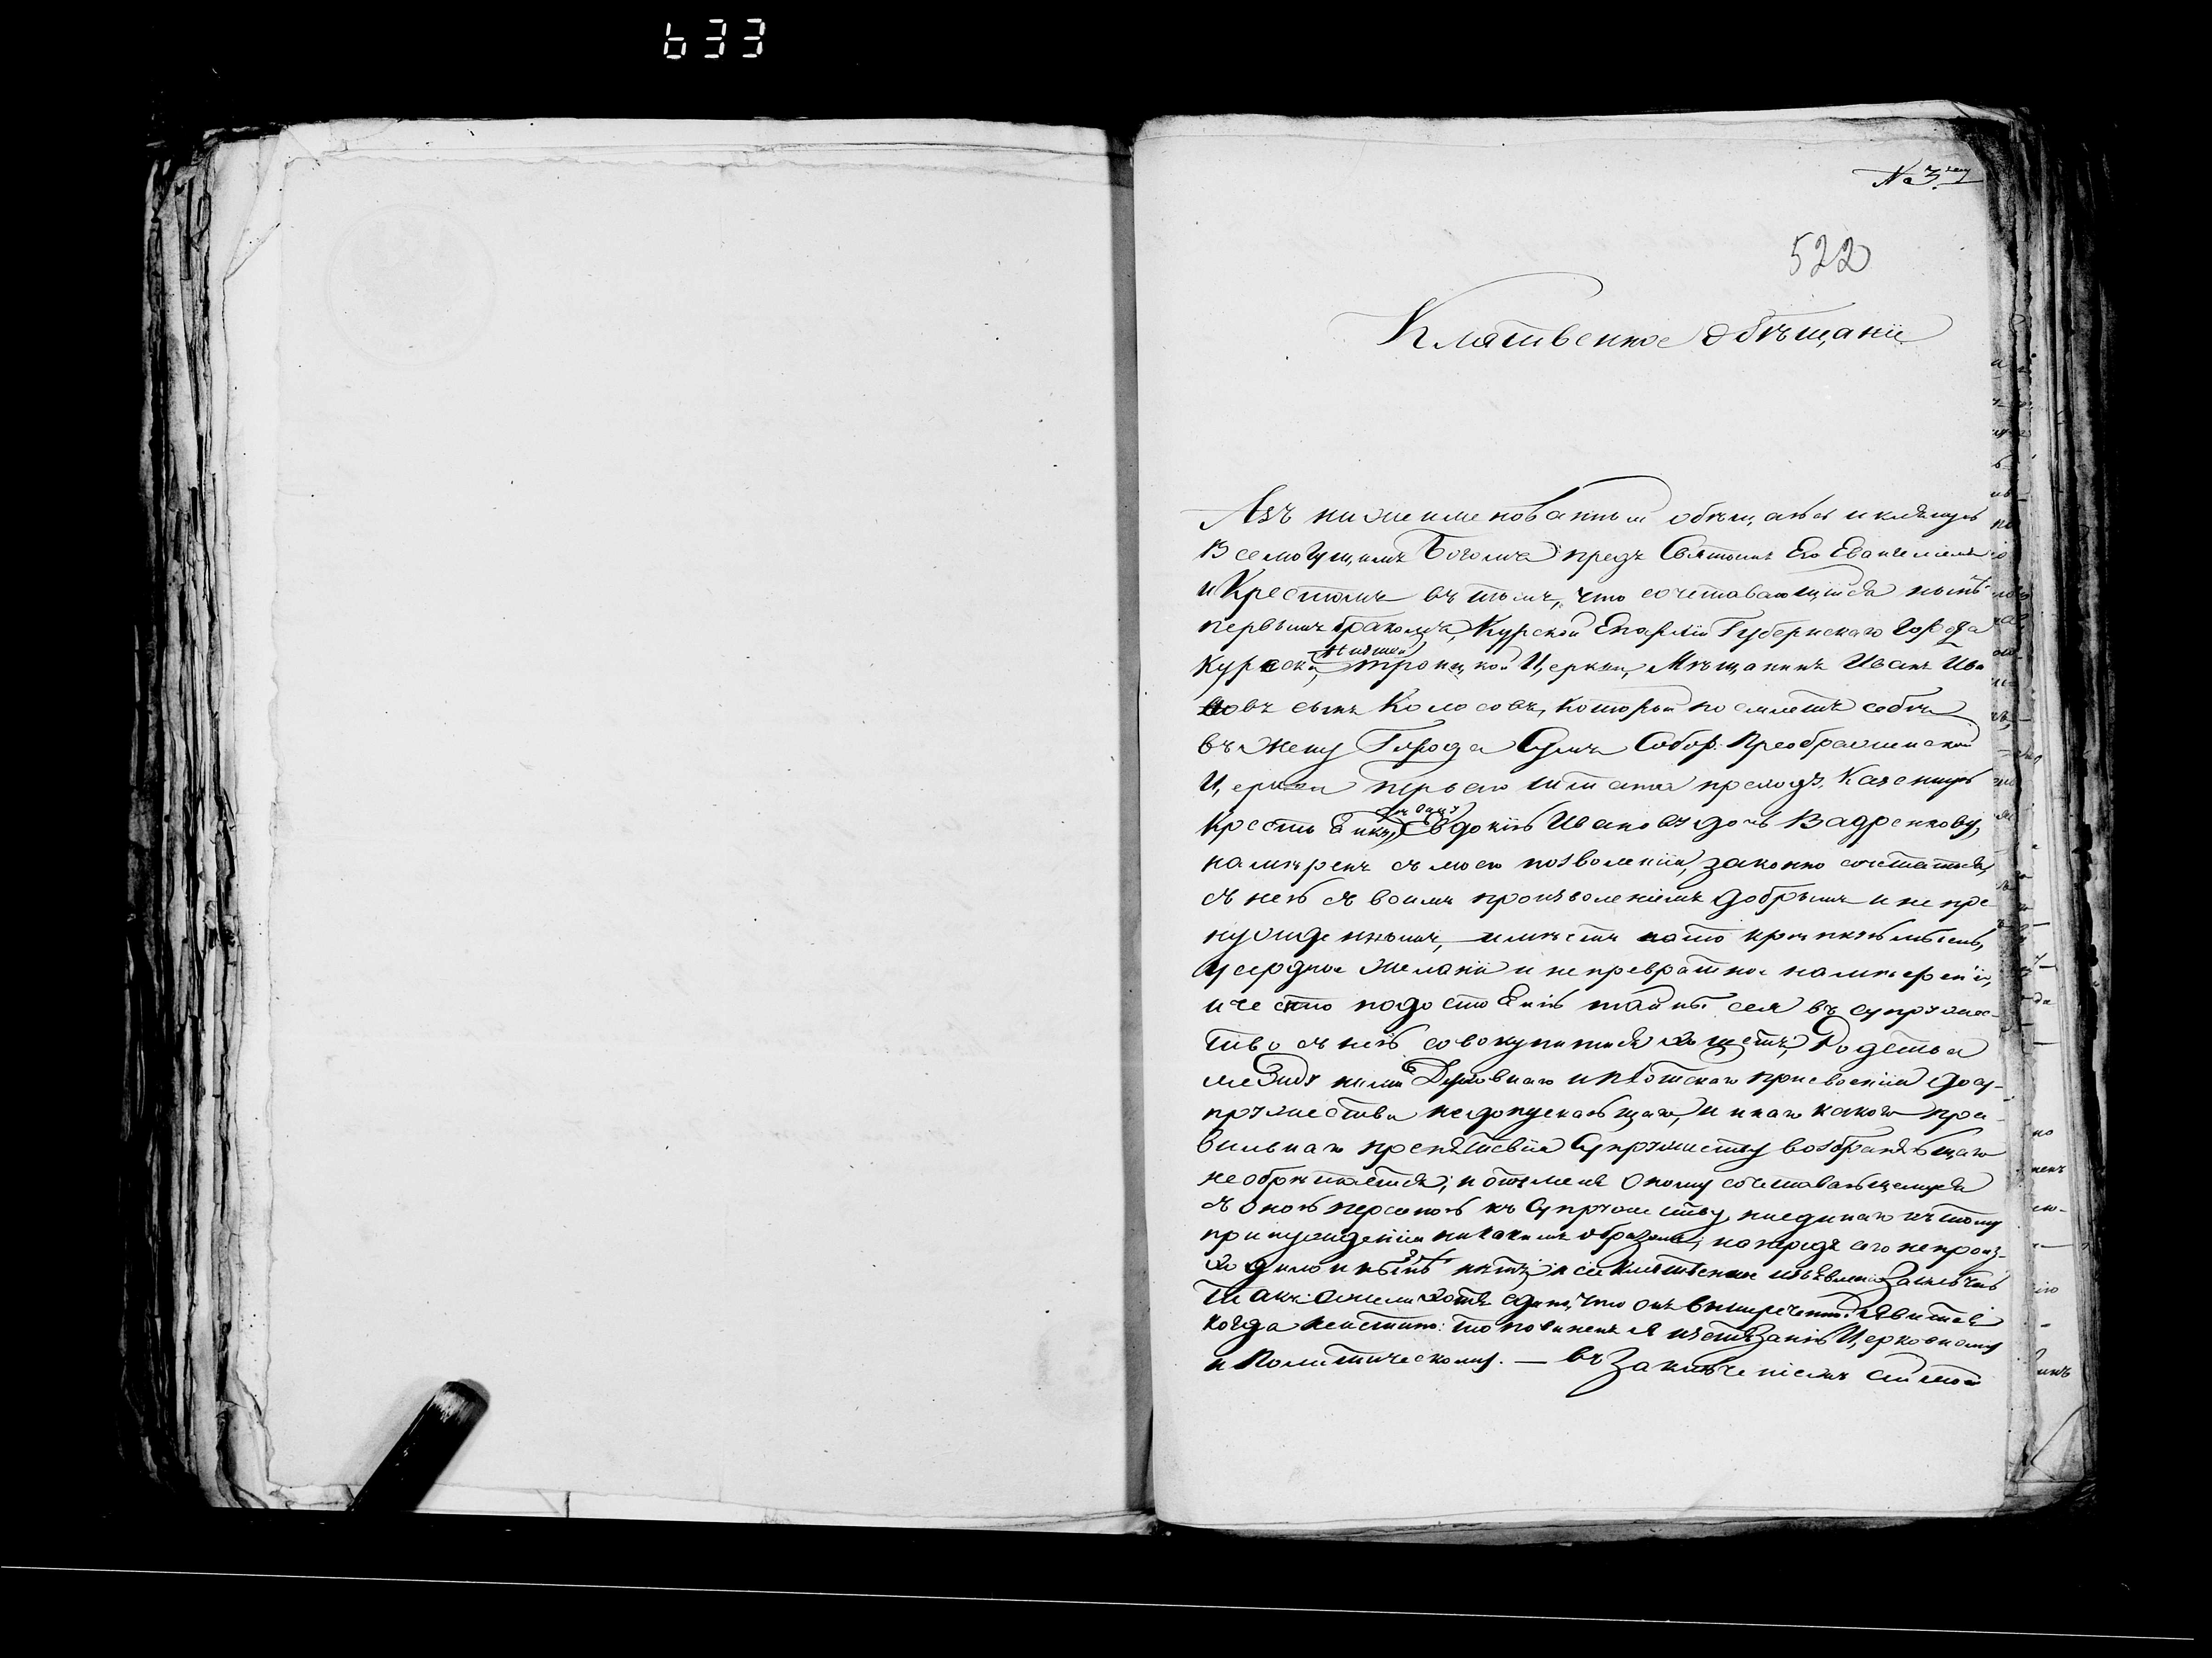 633
№ 3.
522
Клятвенное обѣщаніе
Азъ нижеименованный обѣщаюсь и клянусь
Всемогущимъ Богомъ предъ Святымъ Его Евангеліемъ
и Крестомъ въ томъ, что сочетавающійся нынѣ
первымъ бракомъ, Курской Епархіи Губернскаго Города
Курска, Нижней Троицкой Церкви, Мѣщанинъ Иванъ Ива
новъ сынъ Колосовъ, которой поемлетъ себѣ
въ жену Города Сумъ Собор. Преображенской
Церкви первого штата Казенную
Крестьянку, дѣвицу Евдокію Иванову дочь Вадренкову,
намѣренъ съ моего позволенія, законно сочетаться
съ нею своимъ произволеніемъ добрымъ и непре
нужденнымъ, имѣетъ на то крѣпкую мысль,
усердное желаніе и непревратное намѣреніе,
и честно по достоянію тайны сея въ супружес-
тво съ нею совокупиться хощетъ, Родства
между ними Духовнаго и плотскаго присвоенія до су-
пружества недопускающаго, и инаго какого пра-
вильнаго препятствія супружеству возбраняющаго
не обрѣтается; и отъ мене оному сочетавающемуся
съ оною персоною къ супружеству, ниединаго къ тому
принужденія никакимъ образомъ, напередъ сего непроиз-
ходило и нынѣ нѣтъ, и сіе клятвенное изъявленіе заключаю
такъ: Ежели хотя едино, что отъ вышереченныхъ явится
когда неистинно: то повиненъ я истязанію Церковному
и Политическому. — Въ заключеніемъ сей моей